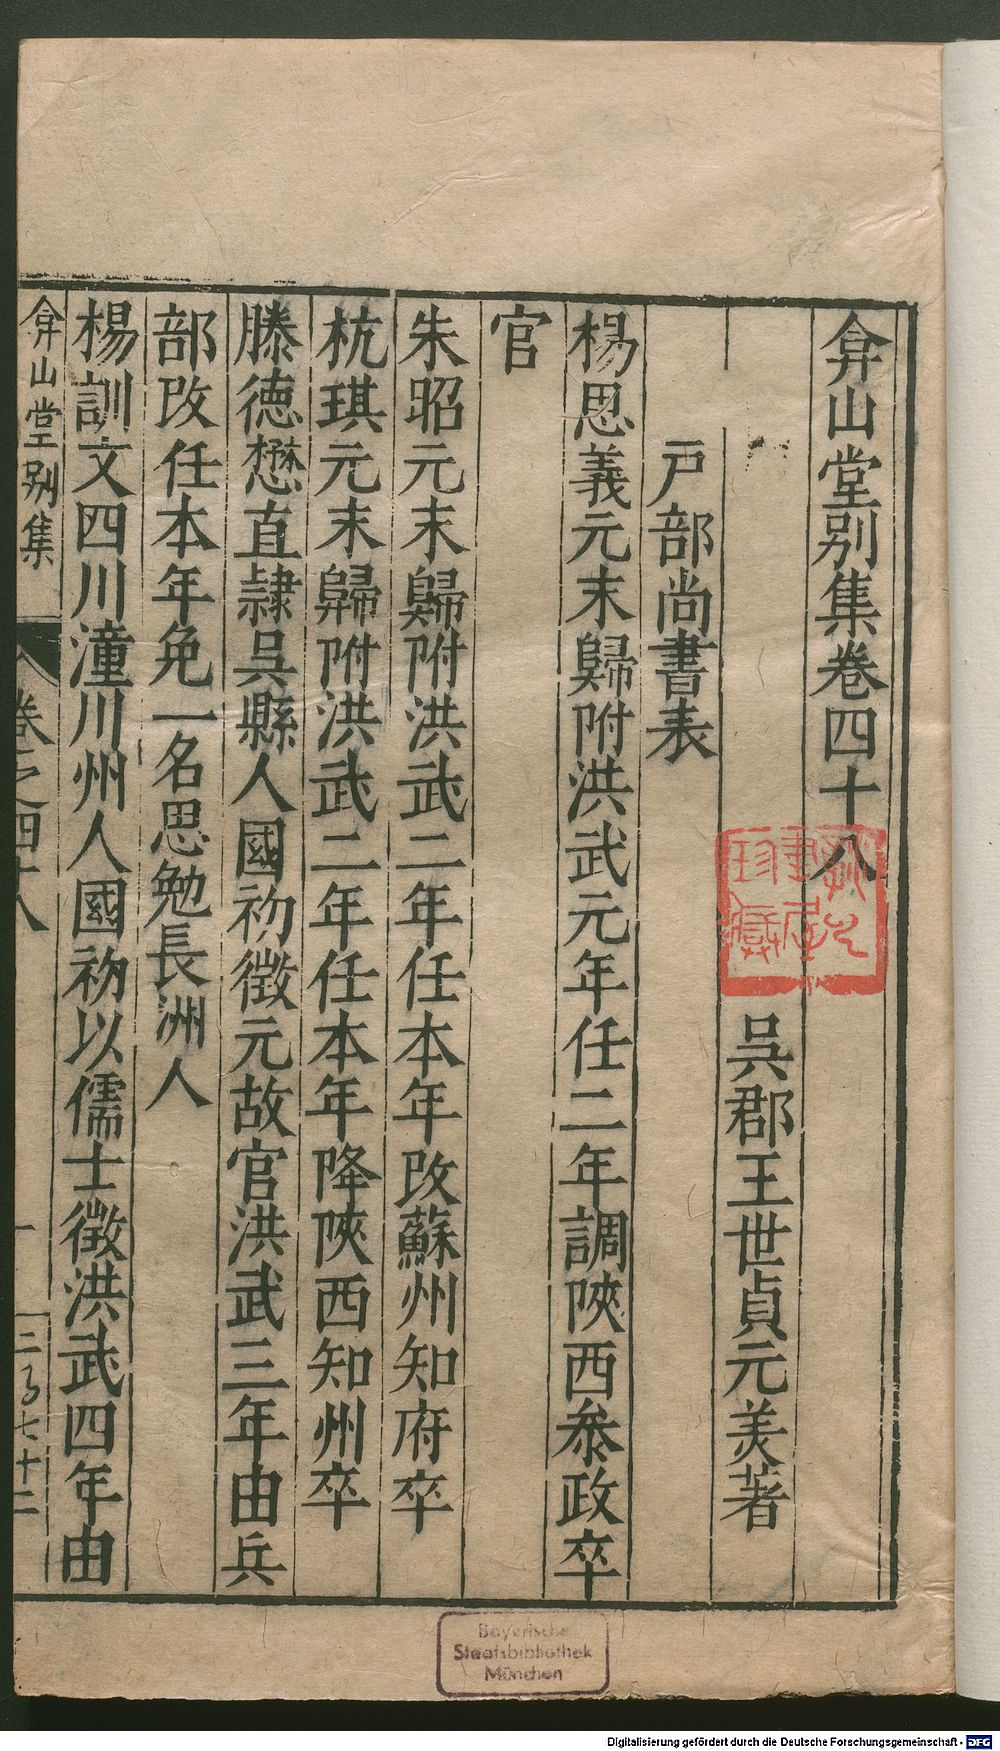 弇山堂別集卷四十八
吳郡王世貞元美著
戶部尚書表
楊思義元末歸附洪武元年任二年調陝西參政卒
官
朱昭元末歸附洪武二年任本年改蘇州知府卒
杭琪元末歸附洪武二年任本年降陝西知州卒
滕德懋直隸吳縣人國初徵元故官洪武三年由兵
部改任本年免一名思勉長洲人
楊訓文四川潼川州人國初以儒士徵洪武四年由
弇山堂別集
卷之四十八
一
Bayerische
Staatsbibliothek
München
Digitalisierung gefördert durch die Deutsche Forschungsgemeinschaft - DFG